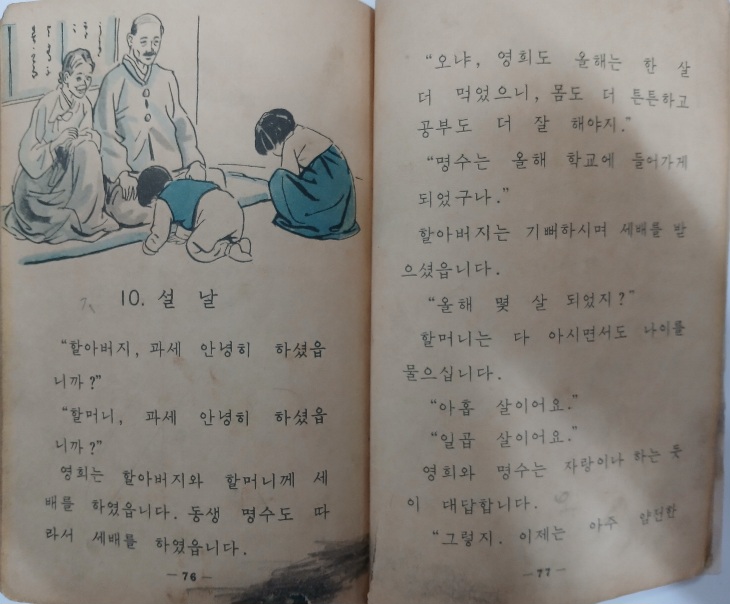 10. 설 날
"할아버지, 과세 안녕히 하셨읍
니까?"
"할머니, 과세 안녕히 하셨읍
니까?"
영희는 할아버지와 할머니께 세
배를 하였읍니다. 동생 명수도 따
라서 세배를 하였읍니다.
— 76 —
"오냐, 영희도 올해는 한 살
더 먹었으니, 몸도 더 튼튼하고
공부도 더 잘 해야지."
"명수는 올해 학교에 들어가게
되었구나."
할아버지는 기뻐하시며 세배를 받
으셨읍니다.
"올해 몇 살 되었지?"
할머니는 다 아시면서도 나이를
물으십니다.
"아홉 살이어요."
"일곱 살이어요."
영희와 명수는 자랑이나 하는 듯
이 대답합니다.
"그렇지. 이제는 아주 얌전한
— 77 —